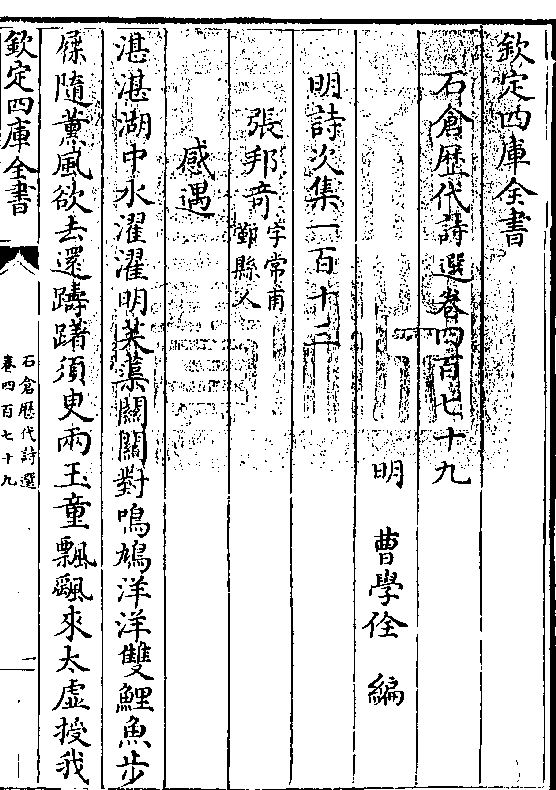 欽定四庫全書
石倉歷代詩選卷四百七十九
明 曹學佺 編
明詩次集一百十三
張邦奇字常甫鄞縣人
感遇
湛湛湖中水濯濯明芙蕖關關對鳴鳩洋洋雙鯉魚步
屧隨薰風欲去還躊躇須臾兩玉童飄飄來太虛授我
欽定四庫全書
石倉歷代詩選
卷四百七十九
一